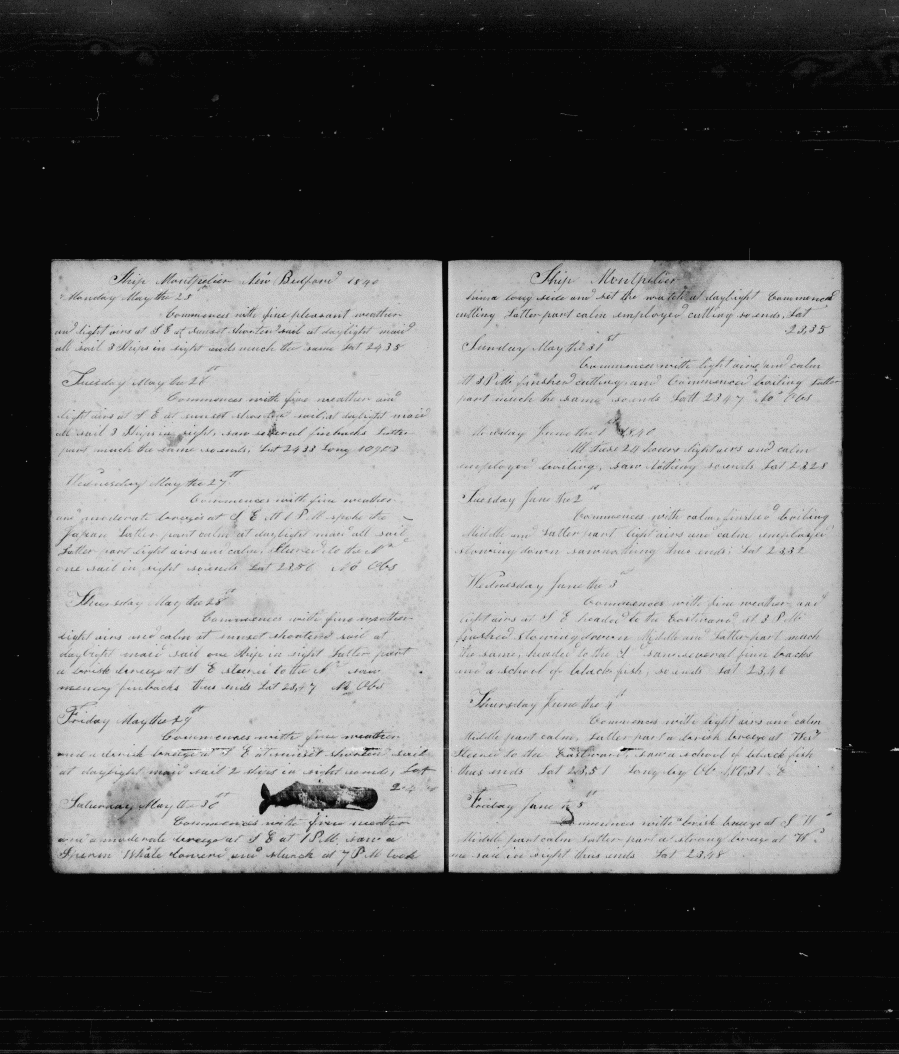 Ship Montpelier New Bedford 1840
Monday May the 25
Commences with fine pleasant weather
and light airs at S E at sunset shorten sail at daylight maid
all sail 3 Ships in sight ends much the same Lat 24 38
Tuesday May the 26th
Commences with fine weather and
light airs at S E at sunset shortne sail at daylight maid
all sail 3 Ships in sight saw several finbacks Latter
part much the same so ends, Lat 24 33 Long
Wednesday May the 27th
Commences with fine weather
and moderate breeze at S E At 1 P M spoke the
Japan Latter part calm at daylight maid all sail
Latter part light airs and calm, steered to the N
one sail in sight so ends Lat 23 50 No Obs
Thursday May the 28th
Commences with fine weather
light airs and calm at sunset shortend sail at
daylight maid sail one Ship in sight Latter part
a brisk breeze at S E steered to the N saw
meney finbacks thus ends Lat 23,47 No Obs
Friday May the 29th
Commences with fine weather
and a brisk breeze at S E at sunset shortend sail
at daylight maid sail 2 Ships in sight so ends, Lat
Saturday May the 30th
Commences with fine weather
and a moderate breeze at S E at 1 P M, saw a
Sperm Whale lowered and struck at 7 P M took
Ship Montpelier
him a long side and set the watch at daylight Commenced
cutting Latter part calm employed cutting so ends, Lat
23,35
Sunday May the 31st
Commences with light airs and calm
At 3 P M finished cutting, and Commenced boiling Latter
part much the same so ends Latt 23 47 No Obs
Monday June the 1st 1840
All these 24 hours light airs and calm
employed boiling, saw nothing so ends, Lat 23,28
Tuesday June the 2nd
Commences with calm, finshed boiling
Middle and Latter part light airs and calm employed
stowing down saw nothing thus ends, Lat 23 32
Wednesday June the 3rd
Commences with fine weather, and
light airs at S E headed to the Eastward at 3 P M
finished stowing down Middle and Latter part much
the same, headed to the S saw several finn backs
and a school of black fish, so ends Lat 23,46
Thursday June the 4th
Commences with light airs and calm
Middle part calm, Latter part a brisk breeze at
Steered to the Eastward, saw a school of black fish
thus ends Lat 23,51 Long by Ob
Friday June the 5th
Commences with brisk breeze at S W
Middle part calm Latter part a strong breeze at W
no sail in sight thus ends Lat 23,48